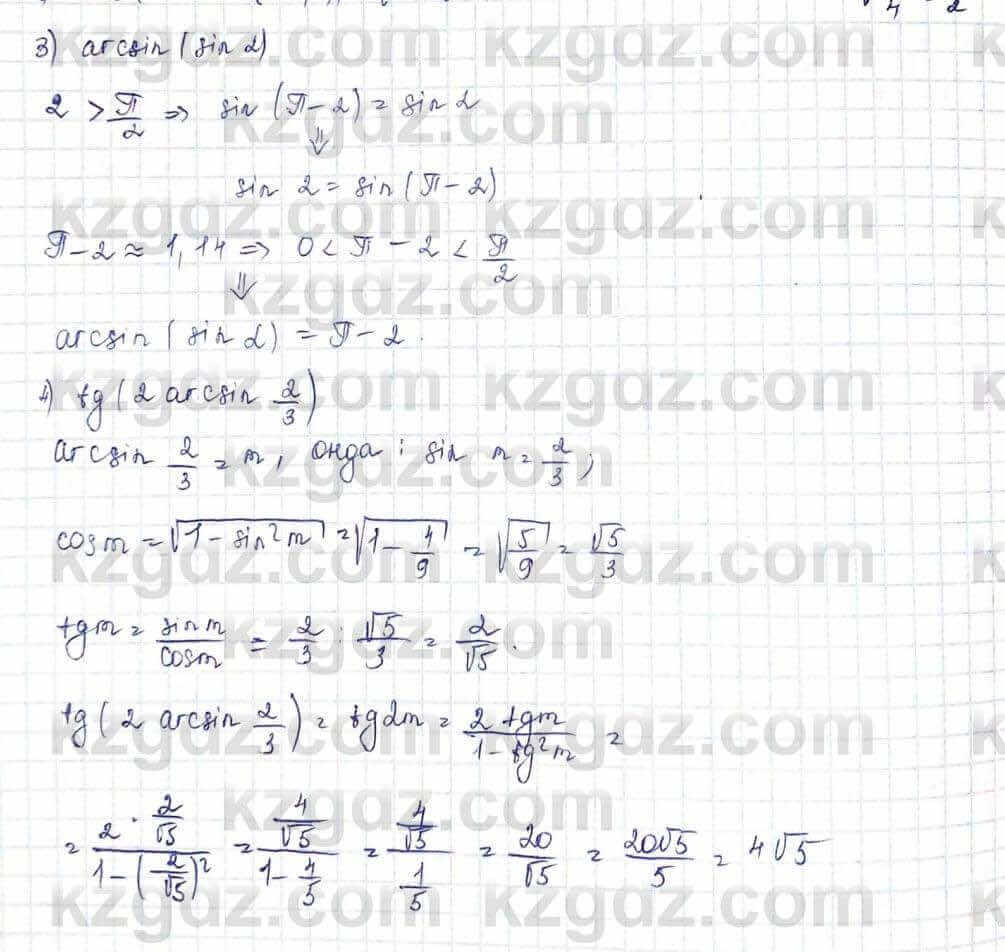 3) arcsin(sin 2)
2 > π/2 ⇒ sin(π-2) = sin 2
⇓
sin 2 = sin(π-2)
π-2 ≈ 1,14 ⇒ 0 < π - 2 < π/2
⇓
arcsin(sin 2) = π-2.
4) tg(2 arcsin 2/3)
arcsin 2/3 = m, онда: sin m = 2/3;
cos m = √(1-sin²m) = √(1-4/9) = √(5/9) = √5/3
tg m = sin m/cos m = 2/3 : √5/3 = 2/√5.
tg(2 arcsin 2/3) = tg 2m = 2 tg m/(1-tg²m) =
= (2·2/√5)/(1-(2/√5)²) = (4/√5)/(1-4/5) = (4/√5)/(1/5) = 20/√5 = 20√5/5 = 4√5
kzgdz.com